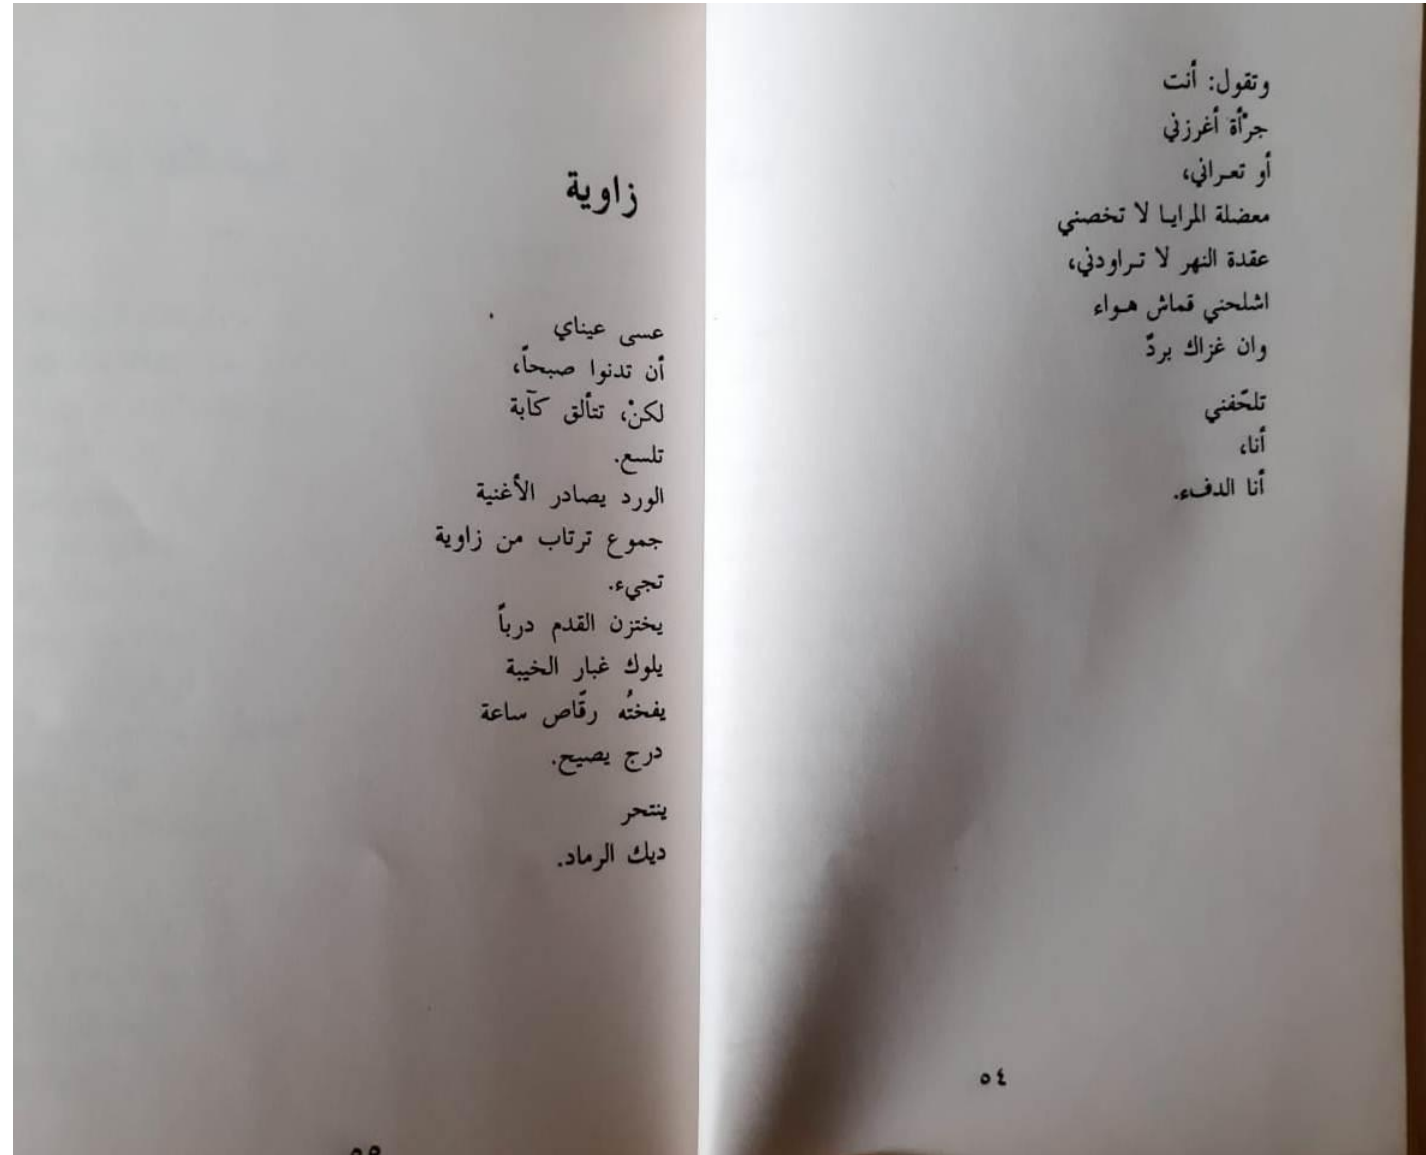 وتقول: أنت
جرْأة أغرزني
أو تعراني،
معضلة المرايا لا تخصني
عقدة النهر لا تراودني،
اشلحني قماش هواء
وان غزاك بردٌ
تلحّفني
أنا،
أنا الدفء.
٥٤
زاوية
عسى عيناي
أن تدنوا صبحاً،
لكنْ، تتألق كآبة
تلسع.
الورد يصادر الأغنية
جموع ترتاب من زاوية
تجيء.
يختزن القدم درباً
يلوك غبار الخيبة
يفختُه رقّاص ساعة
درج يصيح.
ينتحر
ديك الرماد.